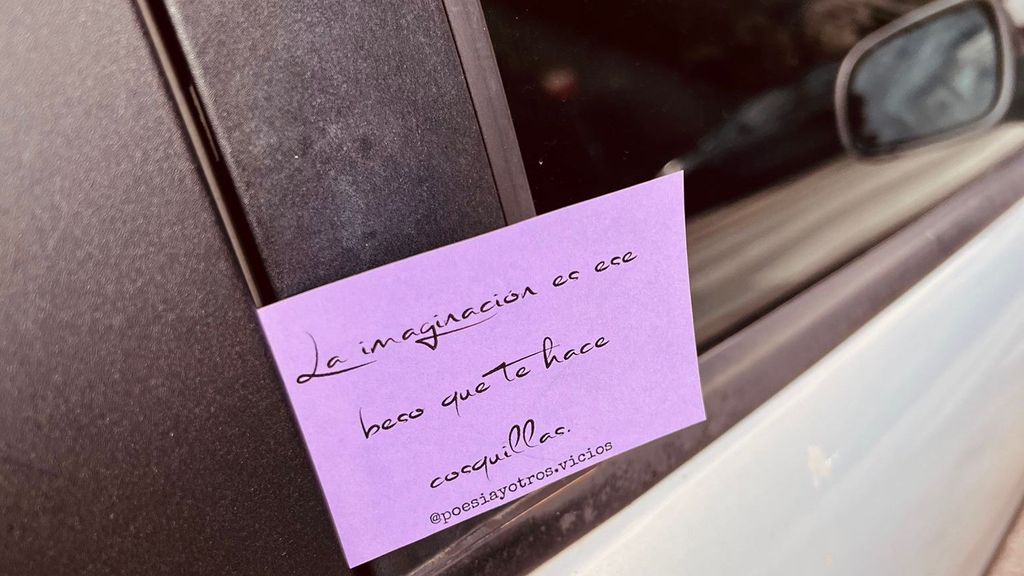 La imaginación es ese
beso que te hace
cosquillas.
@poesiayotros.vicios